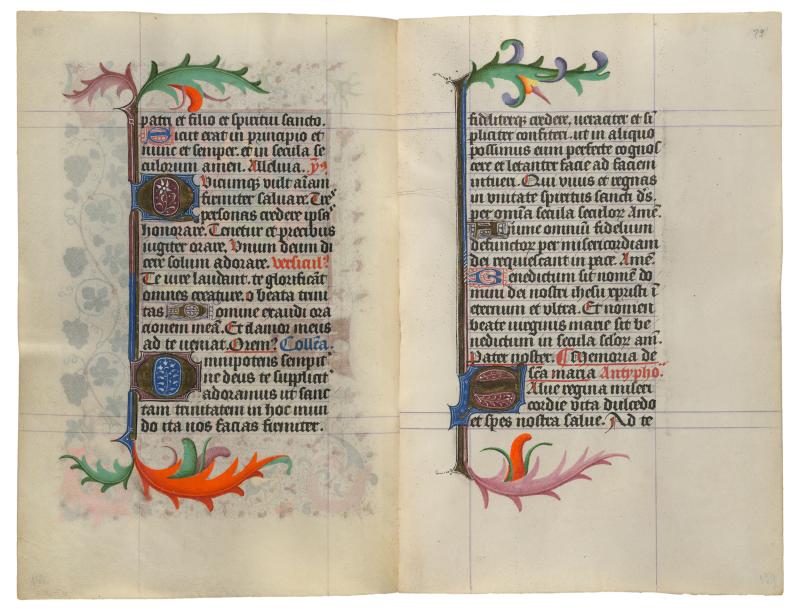 patri et filio et spiritui sancto.
Sicut erat in principio et
nunc et semper. et in secula se
culorum amen. Alleluia.
Uicumq vult aīam
firmiter saluare. Tre
personas credere ipsā
honorare. Tenetur et precibus
iugiter orare. Vnium deum di
cere solum adorare. versicul'
Te iure laudant. te glorificāt
omnes creature. o beata trini
tas Domine exaudi ora
cionem meā. Et clamor meus
ad te ueniat. Orem' Collēa.
mnipotens sempit
ne deus te supplicit
adoramus ut sanc
tam trinitatem in hoc mun
do ita nos facias firmiter.
79
fideliterq credere, ueraciter et si
pliciter confiteri. ut in aliquo
possumus eum perfecte cognos
cere et letanter facie ad faciem
intueri. Qui viuis et regnas
in vnitate spiritus sancti ds.
per omīa secula seculor Amē.
Aīume omnium fidelium
defunctor per misericordiam
dei requiescant in pace. Amē
Benedictum sit nomē do
mini dei nostri ihesu xpristi ī
eternum et vltra. Et nomen
beate uirginis marie sit be
nedictum in secula sclor am.
Pater noster. Memoria de
scā maria Antypho.
Alue regina miseri
cordie vita dulcedo
et spes nostra salue. Ad te